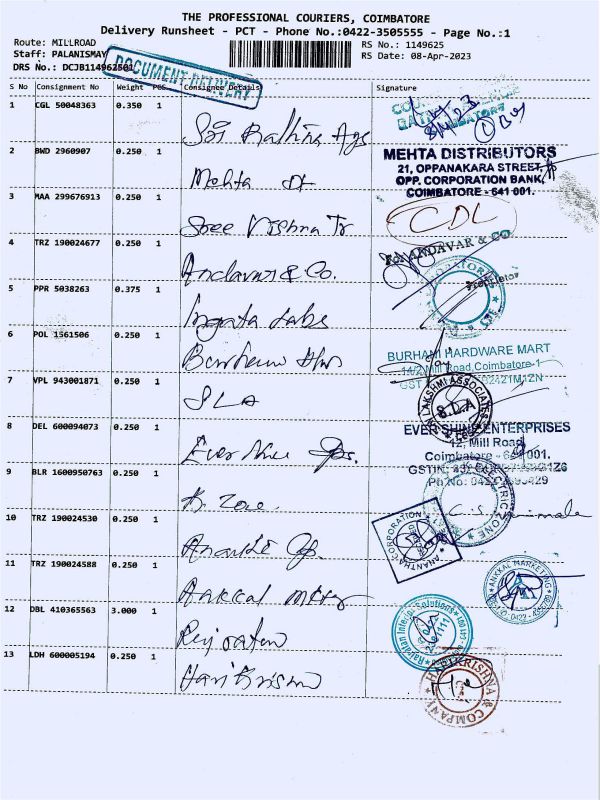 THE PROFESSIONAL COURIERS, COIMBATORE
Delivery Runsheet - PCT - Phone No.:0422-3505555 - Page No.:1
Route: MILLROAD
RS No.: 1149625
Staff: PALANISMAY
RS Date: 08-Apr-2023
DRS No.: DCJB114962501
DOCUMENT DELIVERY
S No Consignment No Weight PCS Consignee Details Signature
1 CGL 50048363 0.350 1
8/4/23
Sri Rathna Ags
2 BWD 2960907 0.250 1
MEHTA DISTRIBUTORS
21, OPPANAKARA STREET,
OPP. CORPORATION BANK,
COIMBATORE - 641 001.
Mehta Dt
3 MAA 299676913 0.250 1
CDL
Sree Vishnu Tr
4 TRZ 190024677 0.250 1
ANDAVAR & CO
Proprietor
Andavar & Co.
5 PPR 5038263 0.375 1
Labs
6 POL 1561506 0.250 1
BURHANI HARDWARE MART
14/2 Mill Road, Coimbatore-1
GST
7 VPL 943001871 0.250 1
LAKSHMI ASSOCIATES
S.D.A
SLA
8 DEL 600094073 0.250 1
EVER SHINE ENTERPRISES
12, Mill Road
Coimbatore - 641 001.
GSTIN:
Ph No:
9 BLR 1600950763 0.250 1
ELECTRIC ZONE
E. Zone
10 TRZ 190024530 0.250 1
ANANTHA CORPORATION
11 TRZ 190024588 0.250 1
ANKKAL MARKETING
Ankkal Mktg
12 DBL 410365563 3.000 1
Rajratan Interior Solutions
Rajratan
13 LDH 600005194 0.250 1
HARIKRISHNA & COMPANY
Hari Krisna